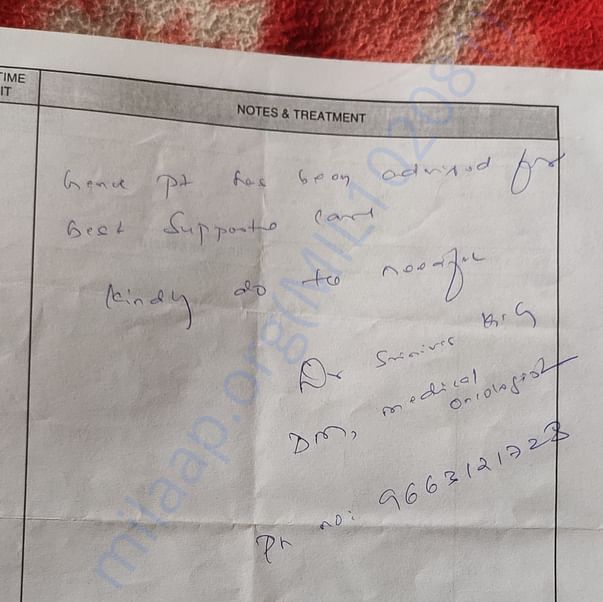 TIME
IT
NOTES & TREATMENT
hence pt has been advised for
best Supportive care
Kindly do the needful
Dr Srinivas K.G
DM, medical
oncologist
Ph no: 9663121728
milaap.org(MIL1020811)